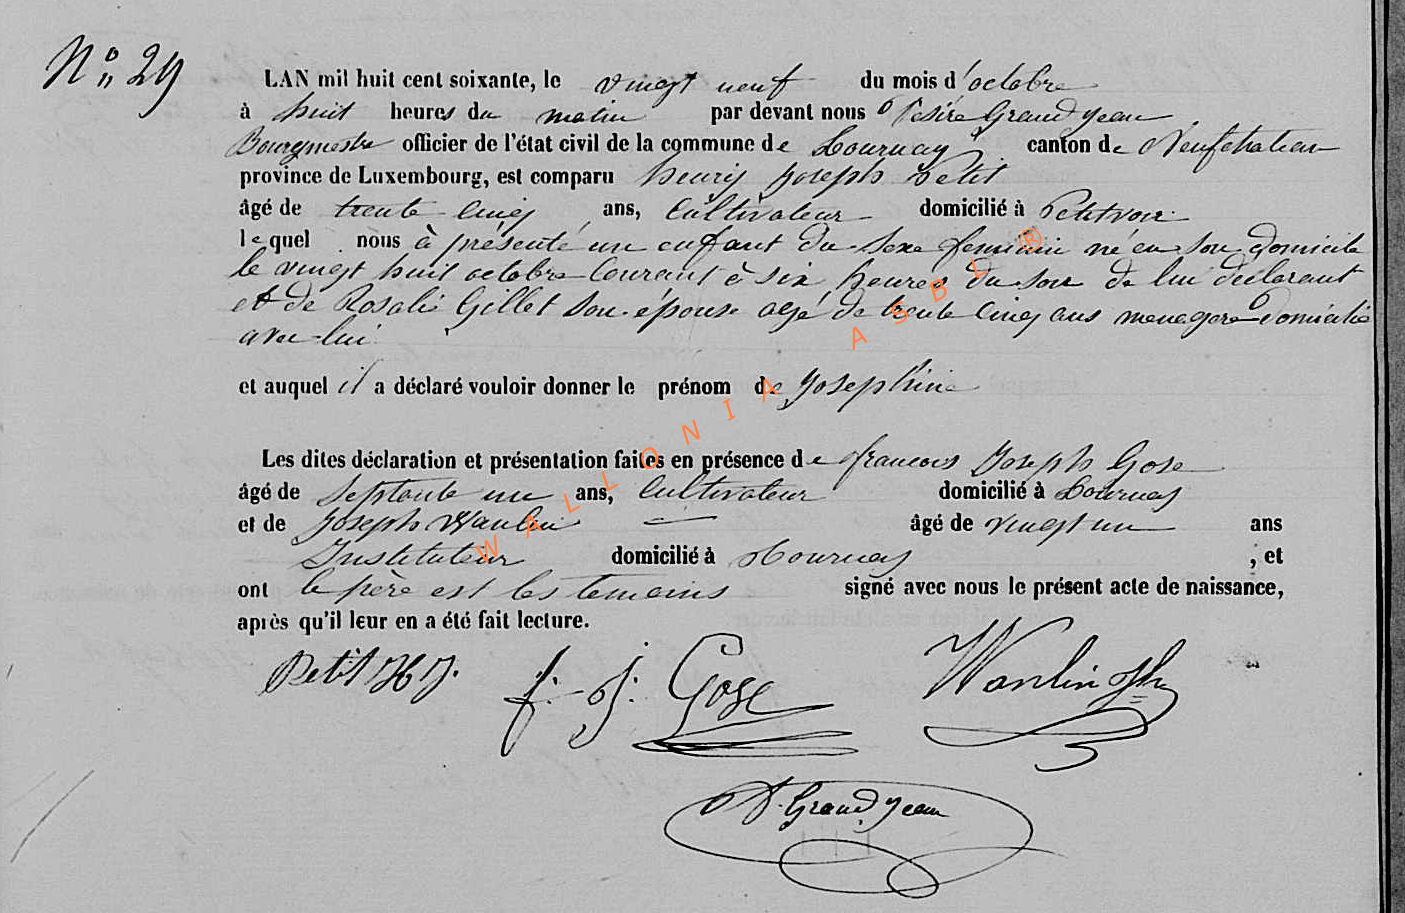 N° 29
LAN mil huit cent soixante, le vingt neuf du mois d'octobre
à huit heures du matin par devant nous Désiré Grandjean
Bourgmestre officier de l'état civil de la commune de Tournay canton de Neufchateau
province de Luxembourg, est comparu henry Joseph Petit
âgé de trente cinq ans, Cultivateur domicilié à Petitvoir
lequel nous à présenté un enfant du sexe feminin né en son domicile
le vingt huit octobre Courant à six heures du soir de lui déclarant
et de Rosalie Gillet son épouse agé de trente cinq ans menagere domicilié
avec lui
et auquel il a déclaré vouloir donner le prénom de Josephine
Les dites déclaration et présentation faites en présence de francois Joseph Gose
âgé de septante un ans, Cultivateur domicilié à Tournay
et de Joseph Wanlin âgé de vingt un ans
Instituteur domicilié à Tournay , et
ont le père est les temoins signé avec nous le présent acte de naissance,
après qu'il leur en a été fait lecture.
Petit H J. f. J. Gose Wanlin Jh
D. Grandjean
WALLONIA ASBL ®